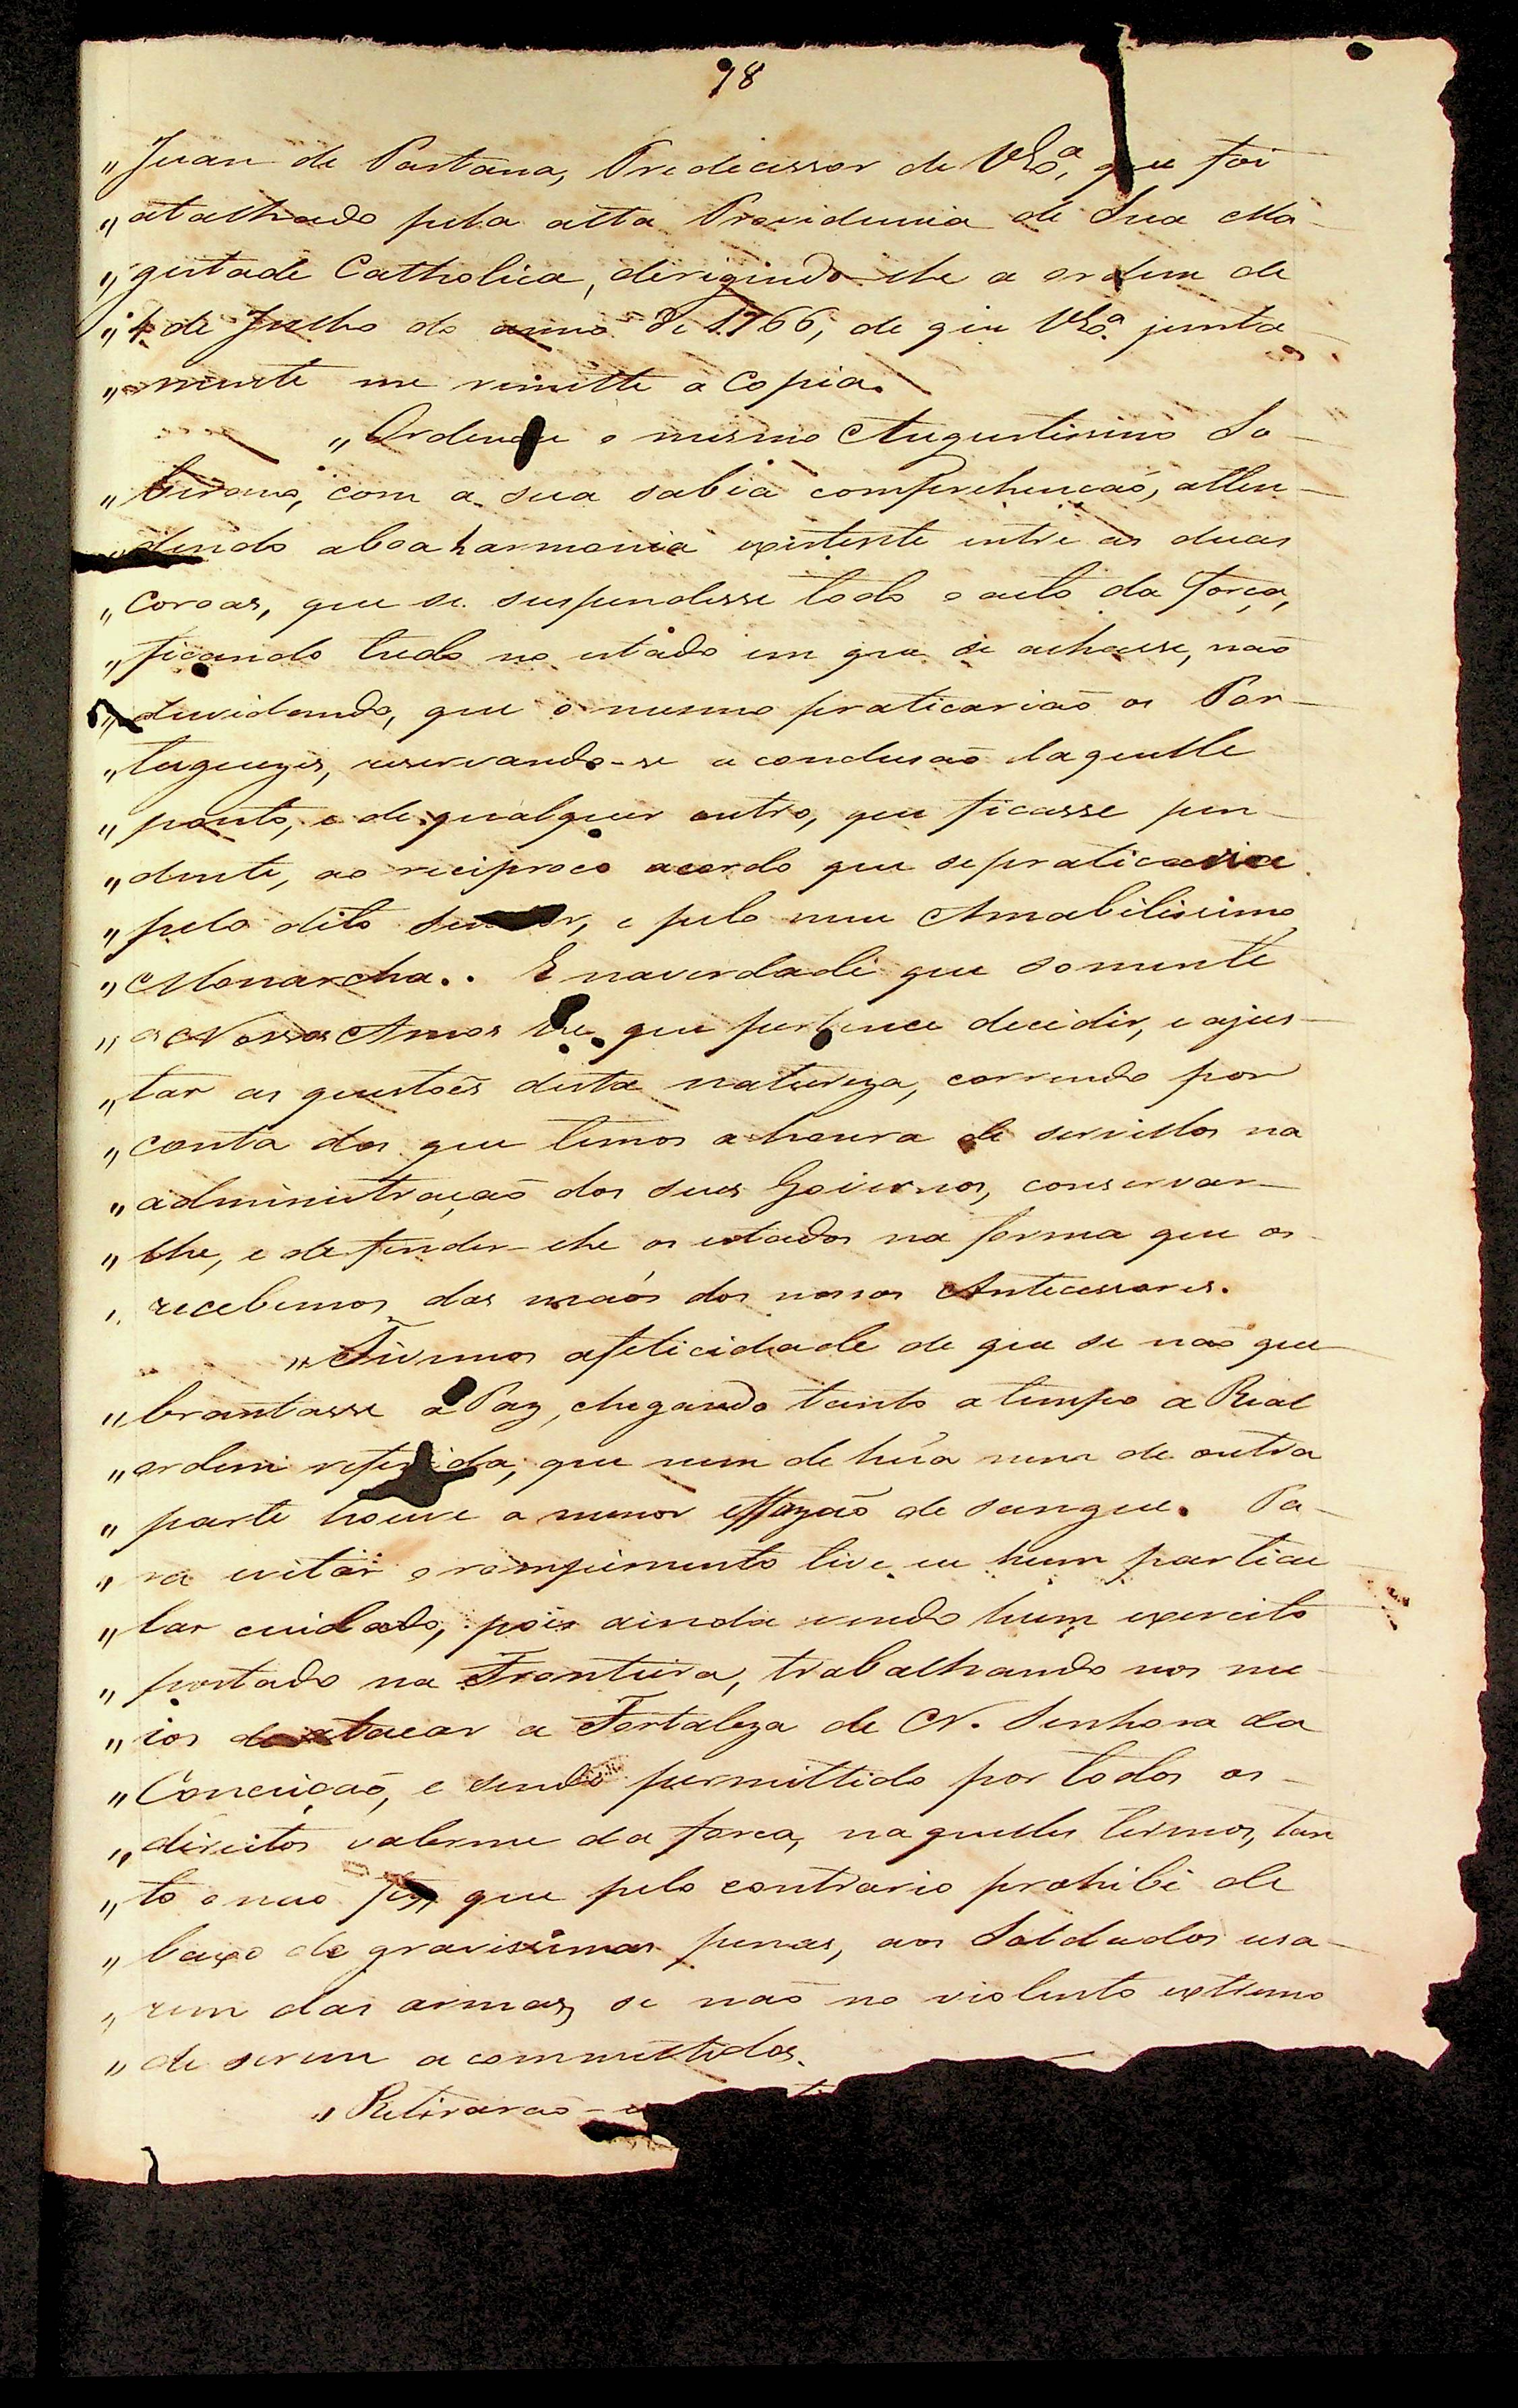 98
"Juan de Pastana, Predicessor de VExª, que foi
"atalhado pela alta Providencia de Sua Ma-
"gestade Catholica, derigindo-lhe a ordem de
"4 de Julho do anno de 1766, de que VExª junta-
"mente me remette a Copia.
"Ordenou o mesmo Augustissimo So-
"berano, com a sua sabia comprehencaõ, atten-
"dendo aboa harmonia existente entre as duas
"Coroas, que se suspendesse todo o acto da força,
"ficando tudo no estado em que se achasse, naõ
"duvidando, que o mesmo praticariaõ os Por-
"tuguezes, reservando-se a conclusaõ daquelle
"ponto, e de qualquer outro, que ficasse pen-
"dente, ao reciproco acordo que sepraticaria
"pelo dito Senhor, e pelo meu Amabilissimo
"Monarcha. E naverdade que somente
"a Nossos Amos he que pertence decidir, e ajus-
"tar as questoẽs desta natureza, correndo por
"conta dos que temos a honra de servillos na
"administraçaõ dos seus Governos, conservar-
"lhe, e defender-lhe os estados na forma que os
"recebemos das maõs dos nossos Antecessores.
"Tivemos afelicidade de que se naõ que-
"brantasse a Paz, chegando tanto a tempo a Real
"ordem referida, que nem de hũa nem de outra
"parte houve a menor effuzaõ de sangue. Pa-
"ra evitar o rompimento tive eu hum particu-
"lar cuidado, pois ainda vendo hum exercito
"postado na Fronteira, trabalhando nos me-
"ios de atacar a Fortaleza de N. Senhora da
"Conceiçaõ, e sendo permittido por todos os
"direitos valerme da forca, naquelles termos, tan
"to o naõ fiz, que pelo contrario prohibi de
"baixo de gravissimas penas, aos Soldados usa-
"rem das armas, se naõ no violento extremo
"de serem acommettidos.
"Retiraraõ-